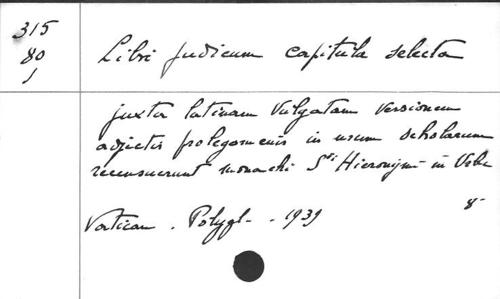 315
80
1
Libri judicum capitula selecta
juxta latinam Vulgatam versionem
adjectis prolegomenis in usum scholarum
recensuerunt monachi Sti Hieronymi in Urbe
Vatican. Polygl. - 1939
8°